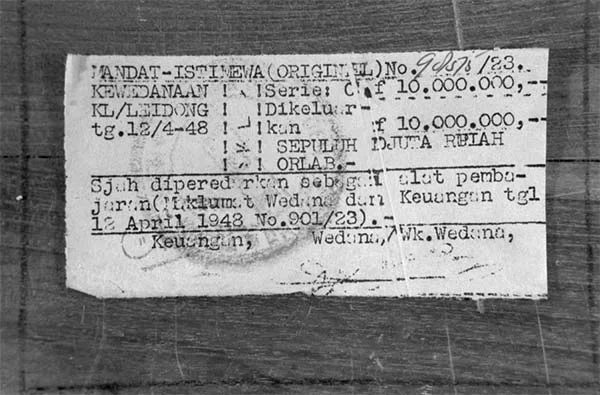 MANDAT-ISTIMEWA(ORIGINEEL)No. /23.
KEWEDANAAN ! ! !Serie: C f 10.000.000,--
KL/LEIDONG ! ! !Dikeluar-
tg.12/4-48 ! ! !kan f 10.000.000,--
! ! ! SEPULUH DJUTA RUPIAH
! ! ! ORLAB.-
Sjah diperedarkan sebagai alat pemba-
jaran(Maklumat Wedana dan Keuangan tgl
12 April 1948 No.901/23).-
Keuangan, Wedana,/Wk.Wedana,